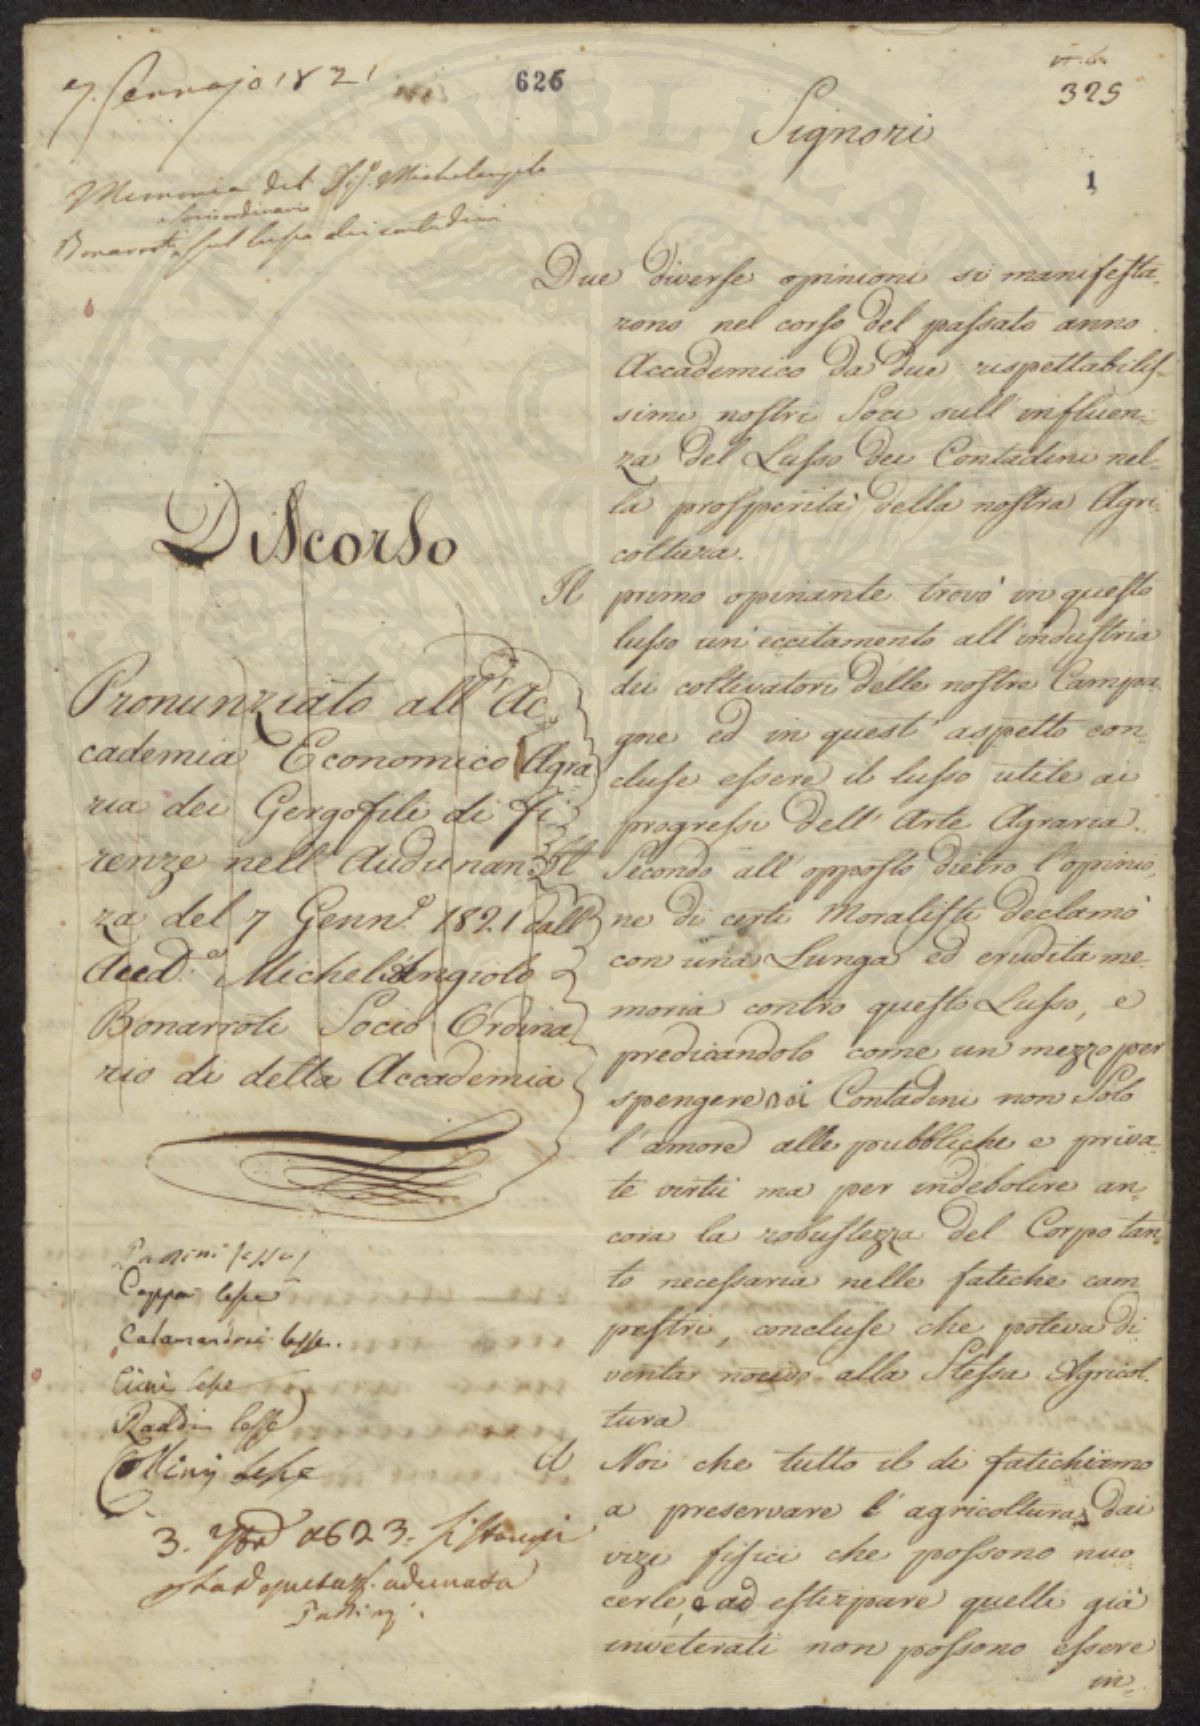 7. Gennajo 1821
626
325
Signori
1
Memoria del Sig.e Michelangelo
Bonarroti sul lusso dei contadini
Discorso
Pronunziato all' Ac
cademia Economico Agra
ria dei Gergofili di Fi
renze nell' Adunan
za del 7 Genn.o 1821 dall'
Accad.o Michel'Angiolo
Bonarroti Socio Ordina
rio di detta Accademia
Paffini lesse
Coppi lesse
Calamandrei lesse.
Cicri lesse
Raddi lesse
Collini lesse
3.
adunata
Due diverse opinioni si manifesta-
rono nel corso del passato anno
Accademico da due rispettabilis-
simi nostri Soci sull' influen-
za del Lusso dei Contadini nel-
la prosperità della nostra Agri-
coltura.
Il primo opinante trovò in questo
lusso un' eccitamento all' industria
dei coltivatori delle nostre Campa-
gne ed in quest' aspetto con-
cluse essere il lusso utile ai
progressi dell' Arte Agraria.
Il Secondo all' opposto dietro l'opinio-
ne di certi Moralisti declamò
con una Lunga ed erudita me-
moria contro questo Lusso, e
predicandolo come un mezzo per
spengere nei Contadini non Solo
l'amore alle pubbliche e priva-
te virtù ma per indebolire an-
cora la robustezza del Corpo tan-
to necessaria nelle fatiche cam
pestri, concluse che poteva di-
ventar nocivo alla Stessa Agricol-
tura.
A Noi che tutto il dì fatichiamo
a preservare l' agricoltura dai
vizi fisici che possono nuo-
cerle, e ad estirpare quelli già
inveterati non possono essere
in-